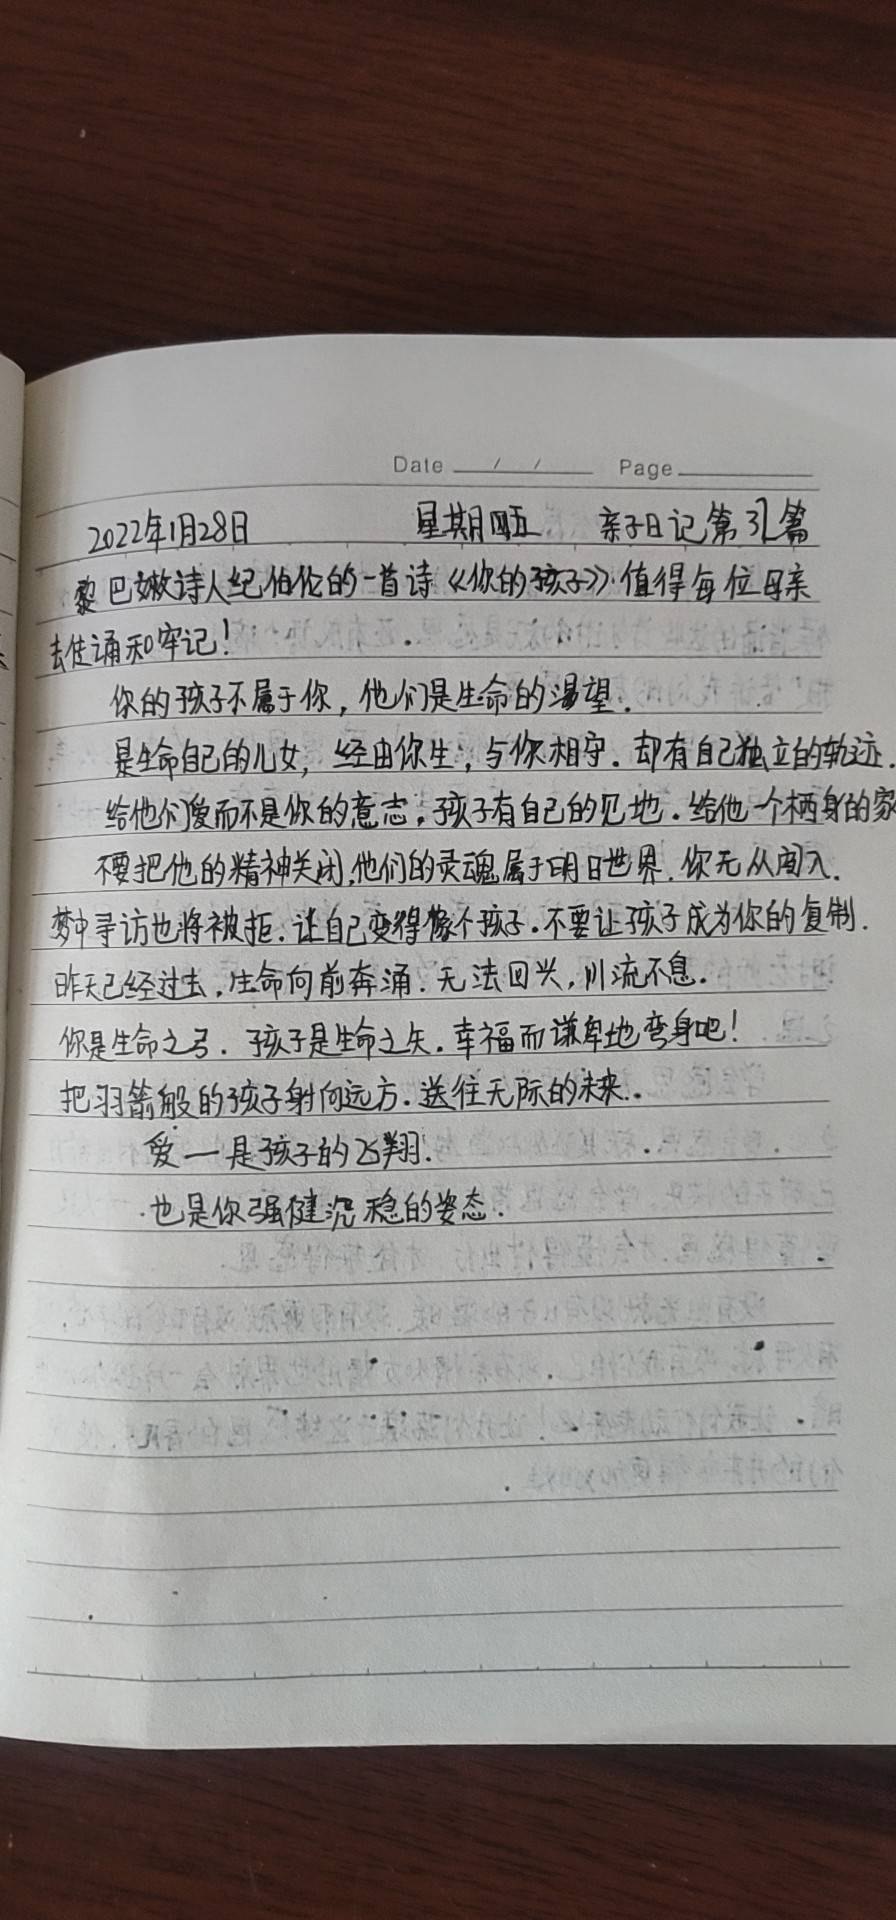 Date / / Page
2022年1月28日 星期五 亲子日记第31篇
黎巴嫩诗人纪伯伦的一首诗《你的孩子》值得每位母亲
去传诵和牢记!
你的孩子不属于你,他们是生命的渴望.
是生命自己的儿女,经由你生,与你相守.却有自己独立的轨迹.
给他们爱而不是你的意志,孩子有自己的见地.给他一个栖身的家
不要把他的精神关闭,他们的灵魂属于明日世界.你无从闯入.
梦中寻访也将被拒.让自己变得像个孩子.不要让孩子成为你的复制.
昨天已经过去,生命向前奔涌.无法回头,川流不息.
你是生命之弓.孩子是生命之矢.幸福而谦卑地弯身吧!
把羽箭般的孩子射向远方.送往无际的未来.
爱一是孩子的飞翔.
也是你强健沉稳的姿态.